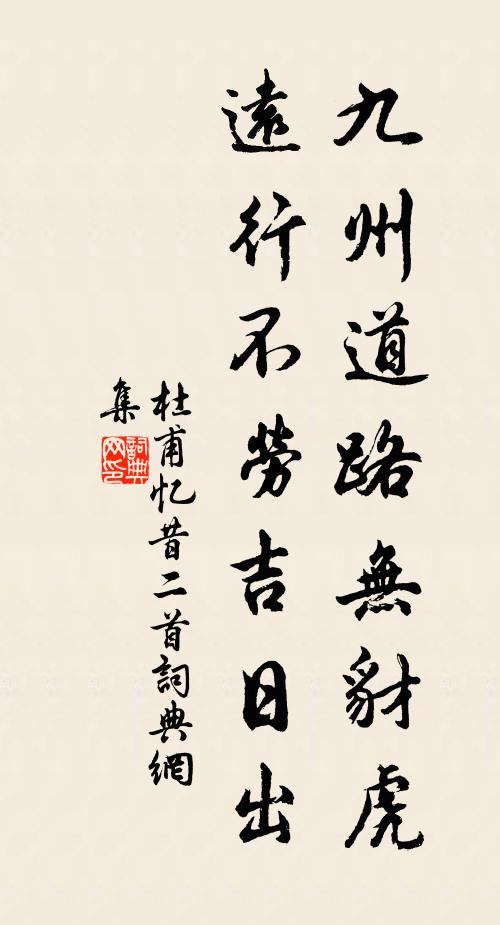 九州道路無豺虎
遠行不勞吉日出
杜甫忆昔二首詞典網
集
詞典网印